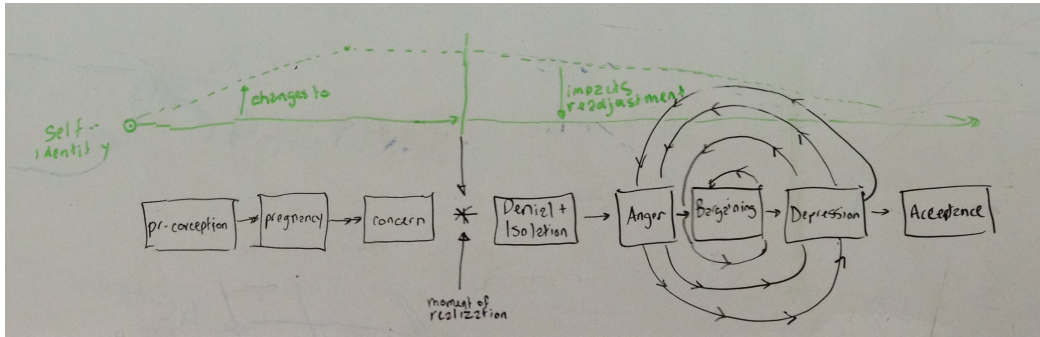 Self-
identity
changes to
impacts
readjustment
pr-conception
pregnancy
concern
Denial +
Isolation
Anger
Bargaining
Depression
Acceptance
moment of
realization